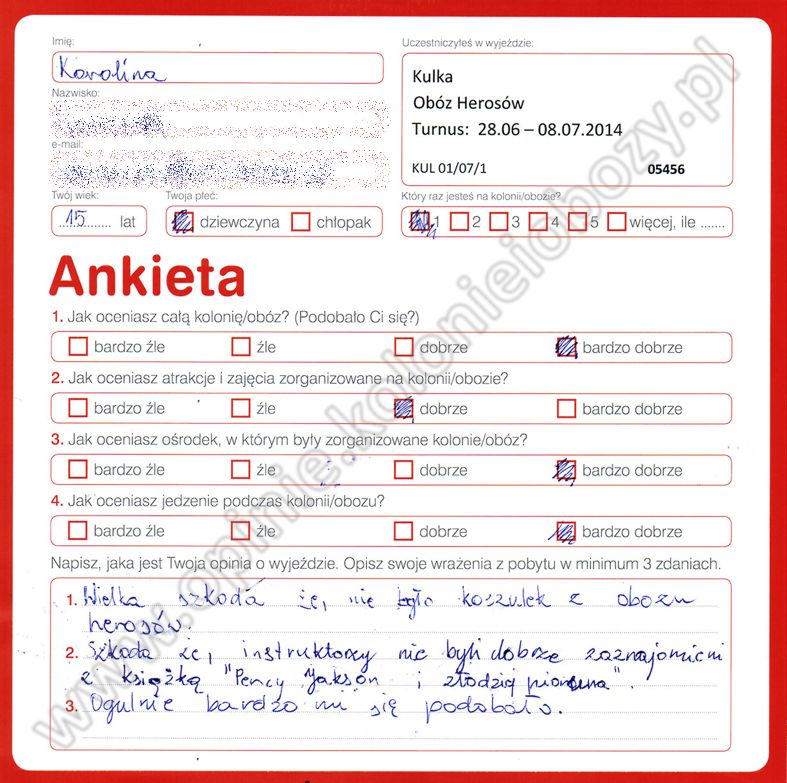 Imię:
Karolina
Nazwisko:
e-mail:
Twój wiek:
15 lat
Twoja płeć:
dziewczyna chłopak
Uczestniczyłeś w wyjeździe:
Kulka
Obóz Herosów
Turnus: 28.06 – 08.07.2014
KUL 01/07/1 05456
Który raz jesteś na kolonii/obozie?
1 2 3 4 5 więcej, ile .......
Ankieta
1. Jak oceniasz całą kolonię/obóz? (Podobało Ci się?)
bardzo źle źle dobrze bardzo dobrze
2. Jak oceniasz atrakcje i zajęcia zorganizowane na kolonii/obozie?
bardzo źle źle dobrze bardzo dobrze
3. Jak oceniasz ośrodek, w którym były zorganizowane kolonie/obóz?
bardzo źle źle dobrze bardzo dobrze
4. Jak oceniasz jedzenie podczas kolonii/obozu?
bardzo źle źle dobrze bardzo dobrze
Napisz, jaka jest Twoja opinia o wyjeździe. Opisz swoje wrażenia z pobytu w minimum 3 zdaniach.
1. Wielka szkoda że, nie było koszulek z obozu
herosów.
2. Szkoda że, instruktorzy nie byli dobrze zaznajomieni
z książką "Percy Jakson i złodziej pioruna".
3. Ogulnie bardzo mi się podobało.
www.opinie.kolonieiobozy.pl